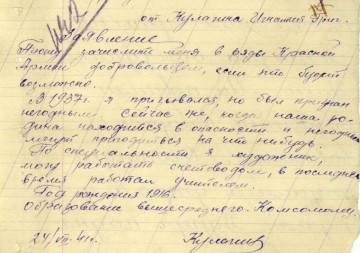 от Кулагина Игнатия Григ.
Заявление
Прошу зачислить меня в ряды Красной
Армии добровольцем, если это будет
возможно.
В 1937г. я призывался, но был признан
негодным. Сейчас же, когда наша ро-
дина находится в опасности и негодные
могут пригодиться на что нибудь.
По специальности я художник,
могу работать счетоводом, в последнее
время работал учителем.
Год рождения 1916.
Образование вышесреднего. Комсомолец
24/VII-41г. Кулагин